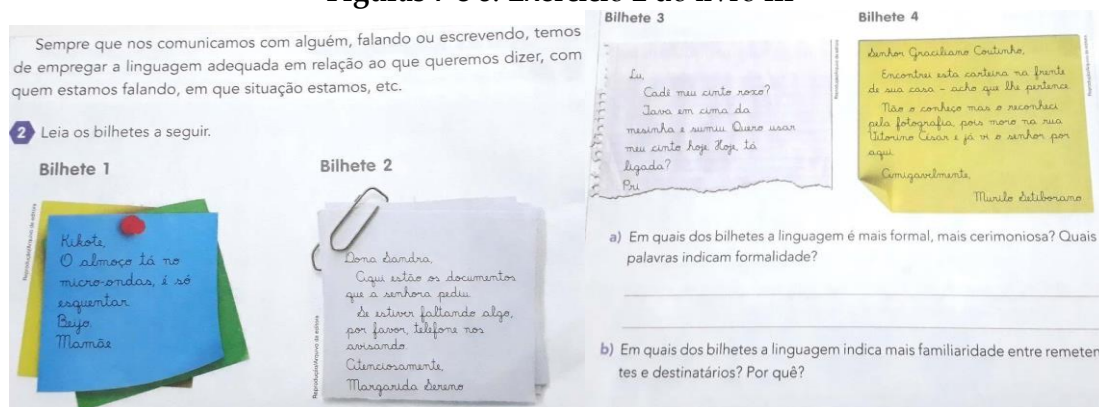 Sempre que nos comunicamos com alguém, falando ou escrevendo, temos
de empregar a linguagem adequada em relação ao que queremos dizer, com
quem estamos falando, em que situação estamos, etc.
2 Leia os bilhetes a seguir.
Bilhete 1
Kikote,
O almoço tá no
micro-ondas, é só
esquentar.
Beijo.
Mamãe
Bilhete 2
Dona Sandra,
Aqui estão os documentos
que a senhora pediu.
Se estiver faltando algo,
por favor, telefone nos
avisando.
Atenciosamente,
Margarida Sereno
Bilhete 3
Lu,
Cadê meu cinto roxo?
Tava em cima da
mesinha e sumiu. Quero usar
meu cinto hoje. Hoje, tá
ligada?
Pri
Bilhete 4
Senhor Graciliano Coutinho,
Encontrei esta carteira na frente
de sua casa – acho que lhe pertence.
Não o conheço mas o reconheci
pela fotografia, pois moro na rua
Vitorino César e já vi o senhor por
aqui.
Amigavelmente,
Murilo Setiborano
a) Em quais dos bilhetes a linguagem é mais formal, mais cerimoniosa? Quais
palavras indicam formalidade?
b) Em quais dos bilhetes a linguagem indica mais familiaridade entre remeten
tes e destinatários? Por quê?
Reprodução/Arquivo da editora
Reprodução/Arquivo da editora